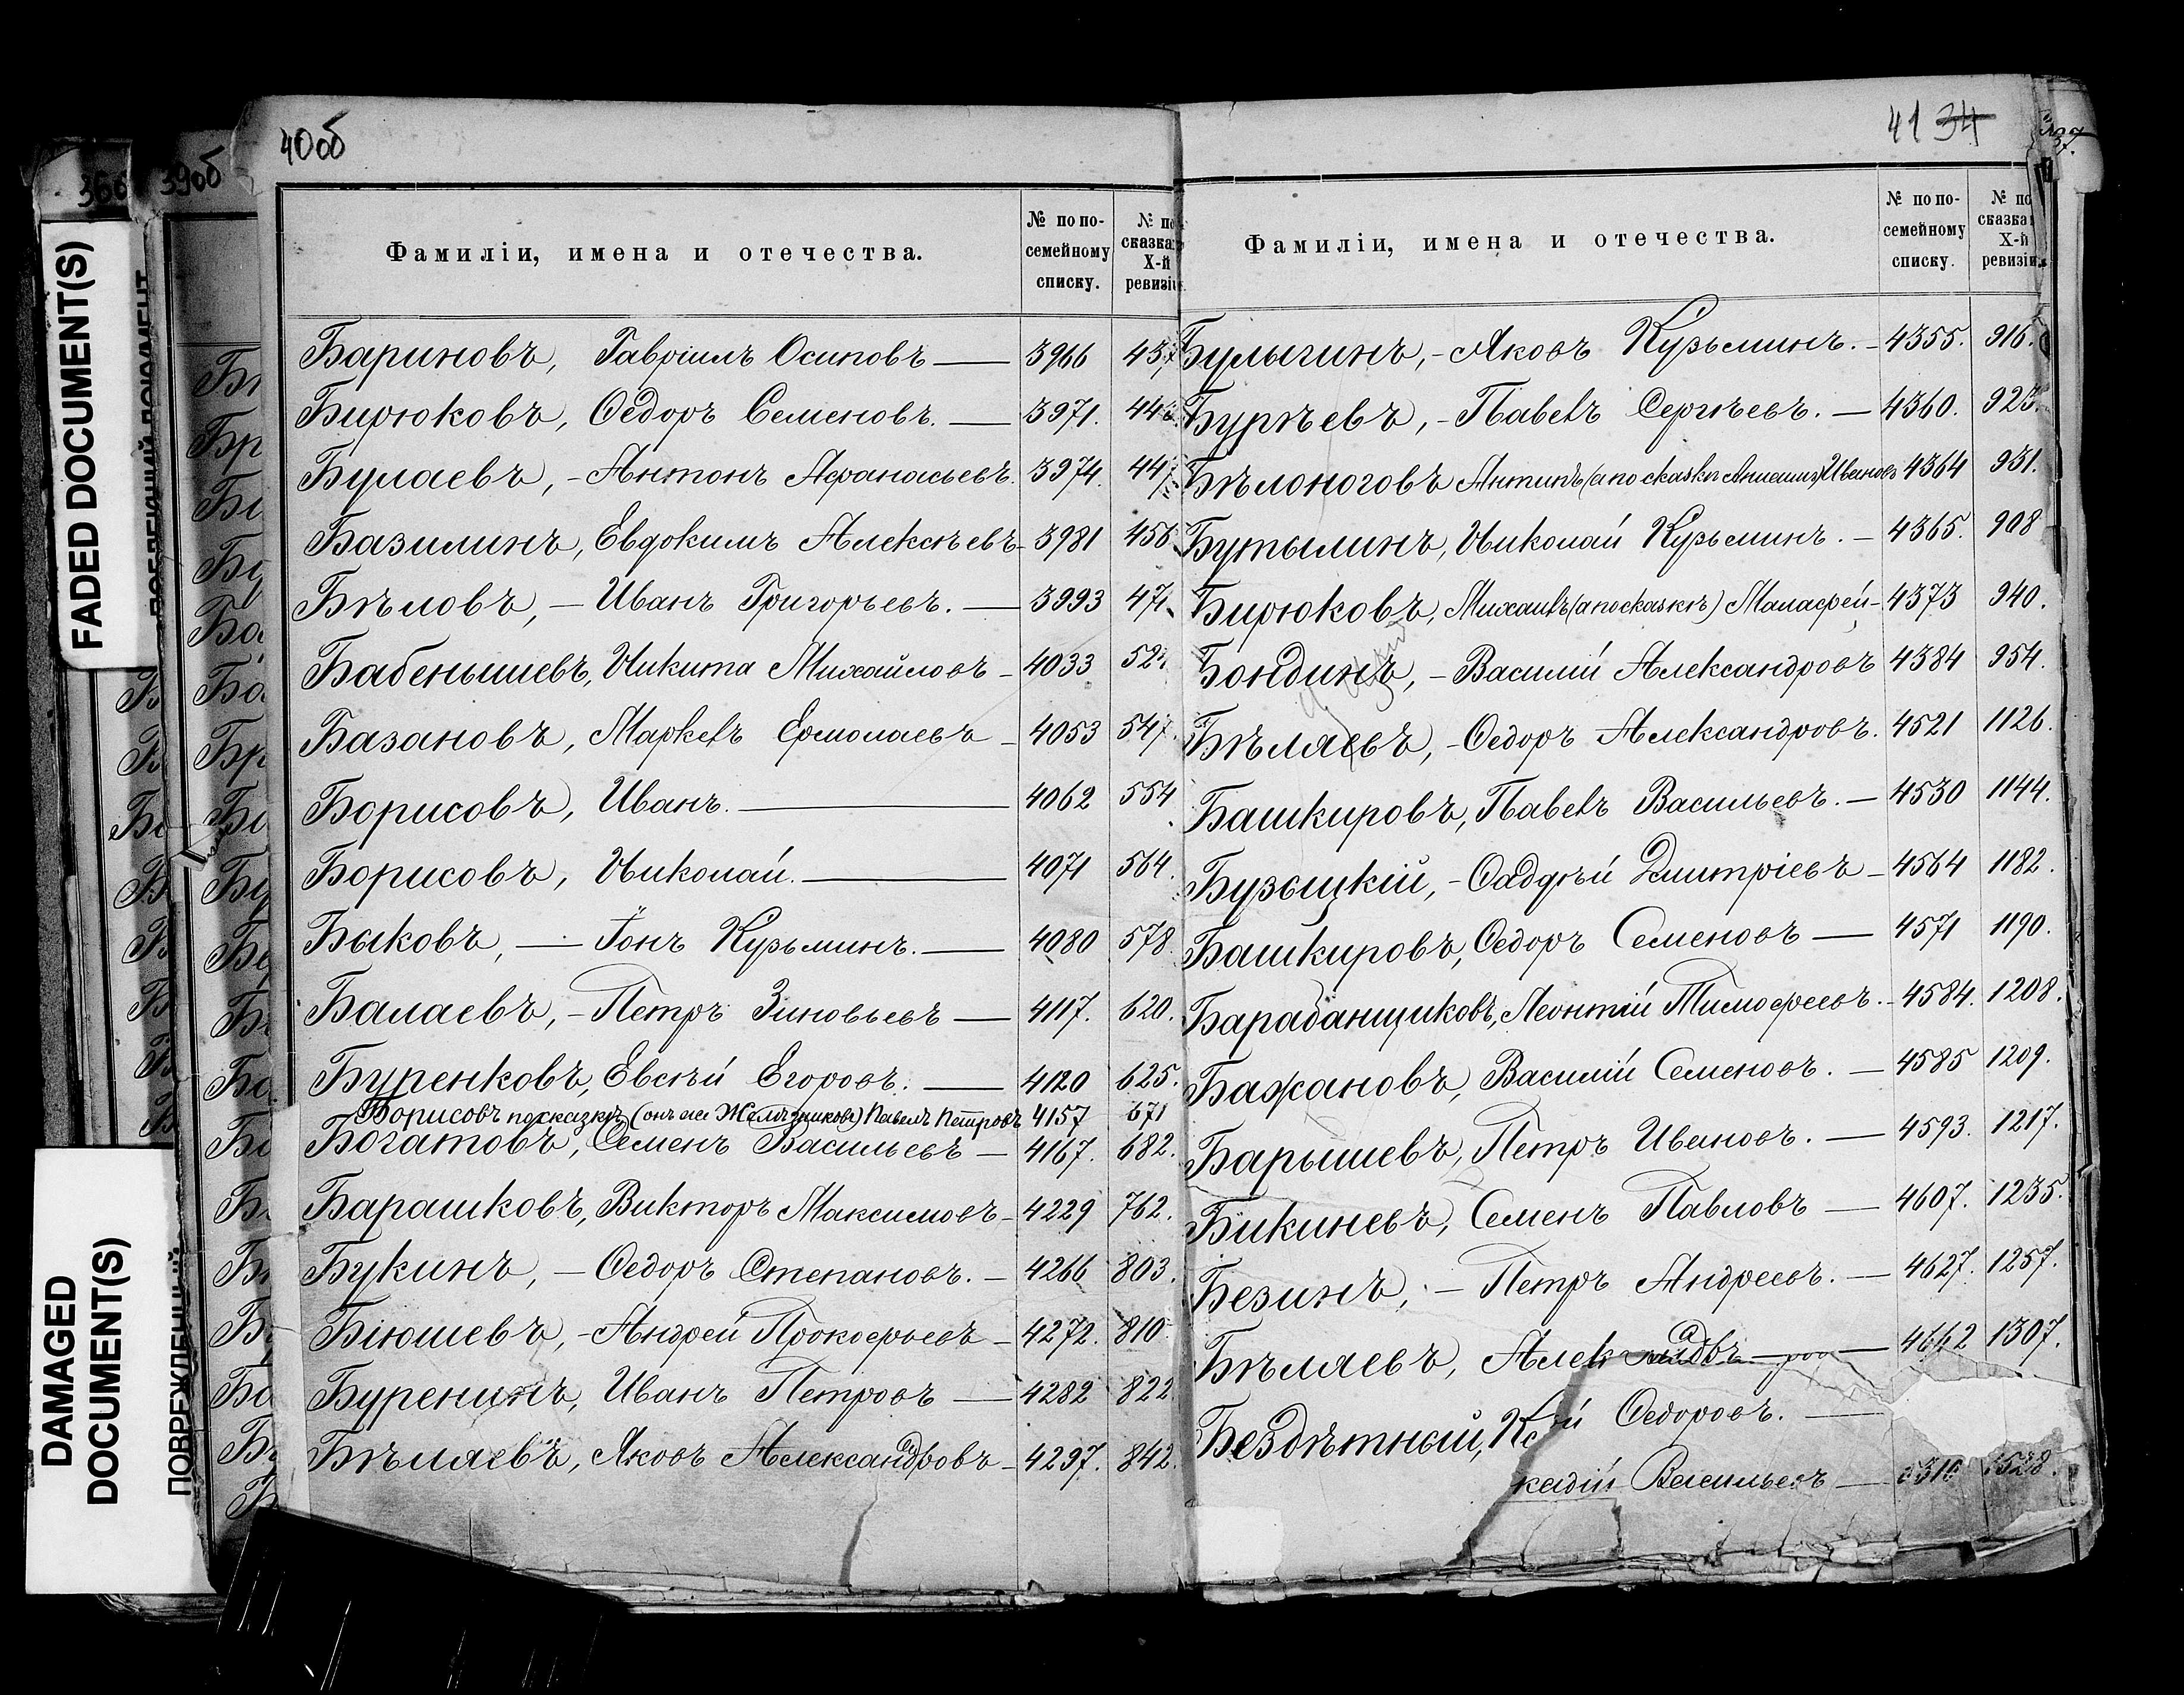 40об
Фамиліи, имена и отечества.
№ по по-
семейному
списку.
№ по
сказка
X-й
ревизіи.
Бариновъ, Гавріилъ Осиповъ — 3966 437
Бирюковъ, Ѳедоръ Семеновъ. — 3971. 442
Булаевъ, - Антонъ Афанасьевъ. 3974. 447
Базилинъ, Евдокимъ Алексѣевъ - 3981 456
Бѣловъ, — Иванъ Григорьевъ. — 3993 471
Бабенышевъ, Никита Михайловъ - 4033 52
Базановъ, Маркелъ Ермолаевъ - 4053 547
Борисовъ, Иванъ. — 4062 554
Борисовъ, Николай. — 4071 564.
Быковъ, — Іонъ Кузьминъ. — 4080 578.
Балаевъ, - Петръ Зиновьевъ — 4117. 620.
Буренковъ, Евсѣй Егоровъ. — 4120 625.
Борисовъ по сказкѣ (онъ же Желѣзниковъ) Павелъ Петровъ 4157 671
Богатовъ, Семенъ Васильевъ — 4167. 682.
Барашковъ, Викторъ Максимовъ - 4229 762.
Букинъ, — Ѳедоръ Степановъ. — 4266 803.
Біюшевъ, - Андрей Прокофьевъ - 4272. 810.
Буренинъ, Иванъ Петровъ — 4282 822
Бѣляевъ, Яковъ Александровъ - 4297. 842.
41 34
Фамиліи, имена и отечества.
№ по по-
семейному
списку.
№ по
сказка
X-й
ревизіи.
Булыгинъ, - Яковъ Кузьминъ. - 4355. 916.
Бурѣевъ, - Павелъ Сергѣевъ. — 4360. 923.
Бѣлоноговъ Антипъ (а по сказкѣ Анисимъ) Ивановъ 4364 931.
Бутылинъ, Николай Кузьминъ. — 4365. 908
Бирюковъ, Михаилъ (а по сказкѣ) Малафей - 4373 940.
Бондинъ, - Василій Александровъ 4384 954.
Бѣляевъ, - Ѳедоръ Александровъ. 4521 1126.
Башкировъ, Павелъ Васильевъ. — 4530 1144.
Бузыцкій, - Ѳаддѣй Дмитріевъ - 4564 1182.
Башкировъ, Ѳедоръ Семеновъ — 4571 1190.
Барабанщиковъ, Леонтій Тимофеевъ. - 4584. 1208.
Бажановъ, Василій Семеновъ. — 4585 1209.
Барышевъ, Петръ Ивановъ. — 4593. 1217.
Бикиневъ, Семенъ Павловъ — 4607. 1235.
Безинъ, - Петръ Андреевъ. — 4627. 1257.
Бѣляевъ, Алек — 4662 1307.
Бездѣтный, Ѳедоровъ. —
кадій Васильевъ — 1528.
FADED DOCUMENT(S)
DAMAGED
DOCUMENT(S)
39об